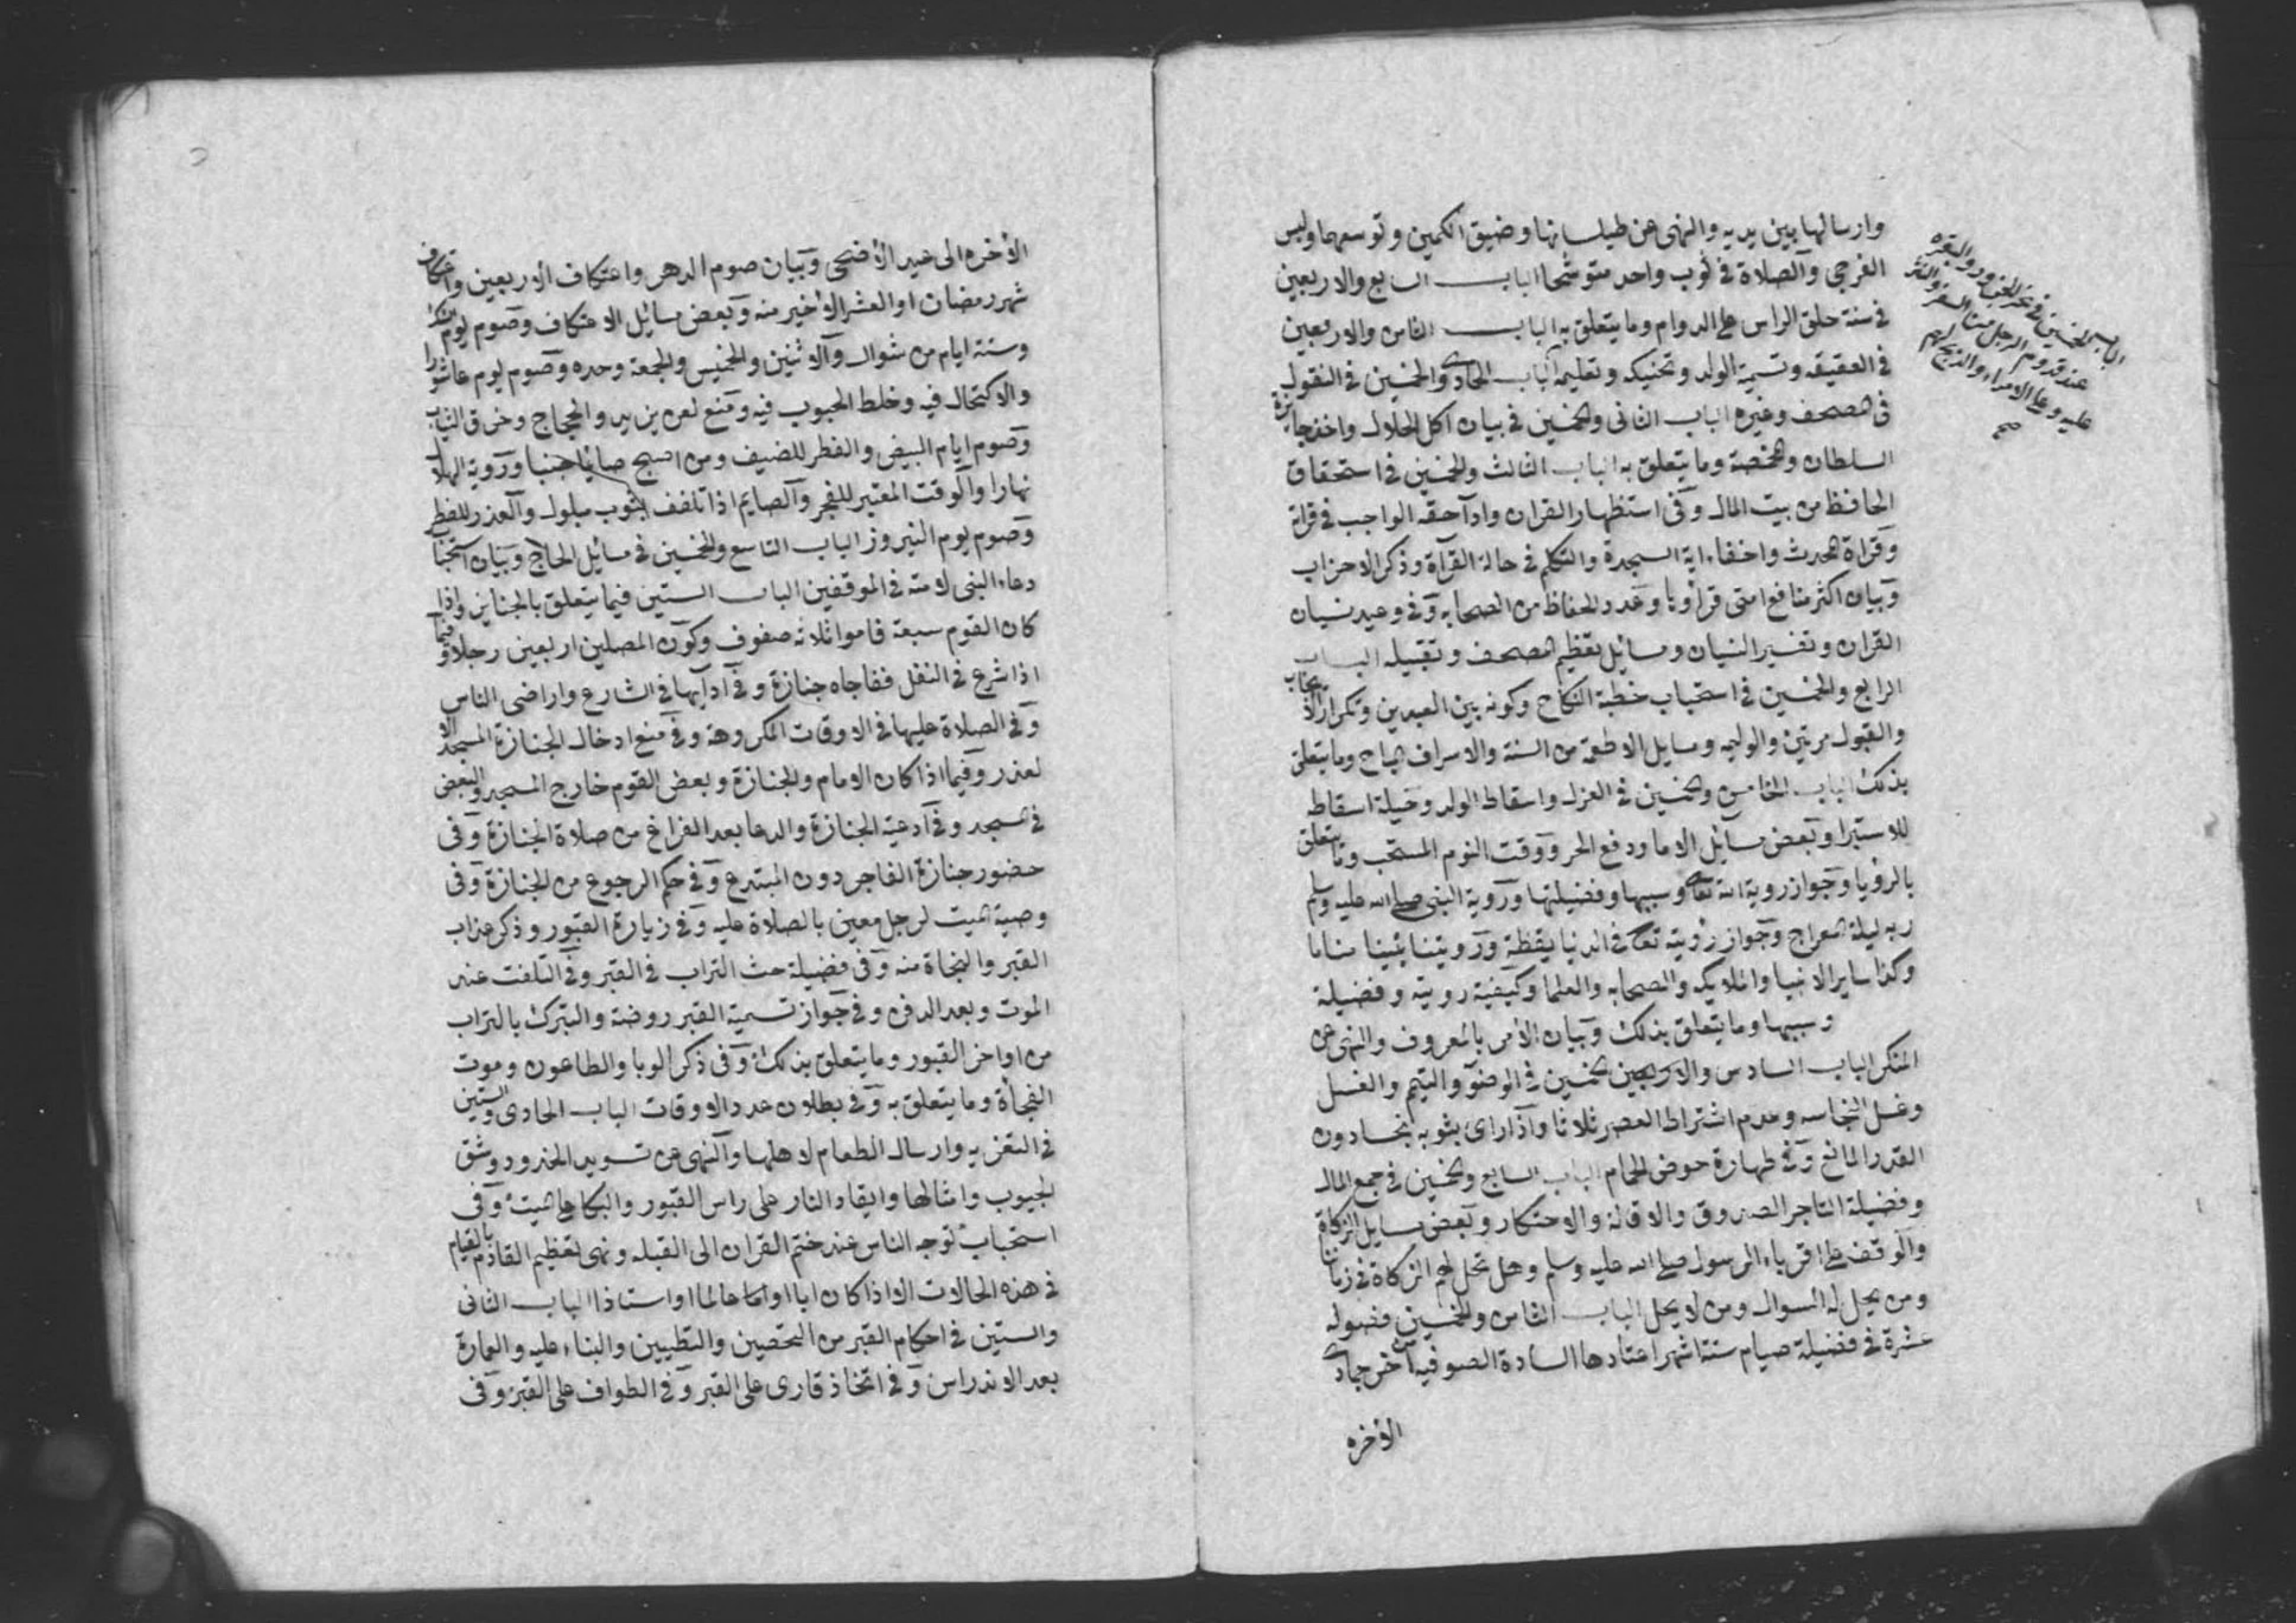 وارسالها بين يديه والنهى عن طيلسانها وضيق الكمين وتوسعهما ولبس
الفرجى والصلاة في ثوب واحد متوشحا الباب السابع والاربعين
في سنة حلق الراس على الدوام وما يتعلق به الباب الثامن والاربعين
في العقيقه وتسمية الولد وتحنيكه وتعليمه الباب الحادى والخمسين في النقول
في المصحف وغيره الباب الثانى والخمسين في بيان اكل الحلال واخذ جايزة
السلطان والمخمصة وما يتعلق به الباب الثالث والخمسين في استحقاق
الحافظ من بيت المال وفى استظهار القران واداحقه الواجب في قراة
وقراة المحدث واخفاء اية السجدة والتكلم في حالة القرآة وذكر الاحزاب
وبيان اكثر منافع امتى قراؤها وعدد الحفاظ من الصحابه وفى وعيد نسيان
القران وتفسير النسيان ومسائل تعظيم المصحف وتقبيله الباب
الرابع والخمسين في استحباب خطبة النكاح وكونه بين العيدين وتكرار الايجاب
والقبول مرتين والوليمه ومسايل الاطعمة من السنة والاسراف المباح وما يتعلق
بذلك الباب الخامس والخمسين في العزل واسقاط الولد وحيلة اسقاط
للاستبرا وبعض مسائل الاما ودفع الحر ووقت النوم المستحب وما يتعلق
بالرؤيا وجواز روية الله تعا وسببها وفضيلتها وروية النبى صلى الله عليه وسلم
ربه ليلة المعراج وجواز رؤيته تعا في الدنيا يقظة ورويتنا نبينا مناما
وكذا ساير الانبيا والملايكه والصحابه والعلما وكيفية رويته وفضيلة
وسببها وما يتعلق بذلك وبيان الأمر بالمعروف والنهى عن
المنكر الباب السادس والخمسين في الوضوء والتيمم والغسل
وغسل النجاسه وعدم اشتراط العصر ثلاثا واذا راى بثوبه نجسا دون
القدر المانع وفى طهارة حوض الحمام الباب السابع والخمسين في جمع المال
وفضيلة التاجر الصدوق والاقالة والاحتكار وبعض مسايل الزكاة
والوقف على اقرباء الرسول صلى الله عليه وسلم وهل تحل لهم الزكاة في زماننا
ومن يحل له السوال ومن لا يحل الباب الثامن والخمسين فصوله
عشرة في فضيلة صيام ستة اشهر اعتادها السادة الصوفيه من اخر جمادى
الأخره
عند قدوم الرجل من السفر
عليه وعلى الامراء والذبح لهم
الأخره الى عيد الأضحى وبيان صوم الدهر واعتكاف الاربعين واعتكاف
شهر رمضان او العشر الاخير منه وبعض مسائل الاعتكاف وصوم يوم الشك
وستة ايام من شوال والاثنين والخميس والجمعة وحده وصوم يوم عاشورا
والاكتحال فيه وخلط الحبوب فيه ومنع لعن يزيد والحجاج وخرق الثياب
وصوم ايام البيض والفطر للضيف ومن اصبح صائما جنبا وروية الهلال
نهارا والوقت المعتبر للفجر والصايم اذا تلفف بثوب مبلول والعذر للفطر
وصوم يوم النيروز الباب التاسع والخمسين في مسائل الحاج وبيان استجابة
دعاء النبى لامته في الموقفين الباب الستين فيما يتعلق بالجنايز واذا
كان القوم سبعة قاموا ثلاثه صفوف وكون المصلين اربعين رجلا وفيما
اذا شرع في النفل ففاجاه جنازة وفى آدابها في الشارع واراضى الناس
وفى الصلاة عليها في الاوقات المكروهة وفى منع ادخال الجنازة المسجد الا
لعذر وفيما اذا كان الامام والجنازة وبعض القوم خارج المسجد والبعض
في المسجد وفى ادعية الجنازة والدعا بعد الفراغ من صلاة الجنازة وفى
حضور جنازة الفاجر دون المبتدع وفى حكم الرجوع من الجنازة وفى
وصية الميت لرجل معين بالصلاة عليه وفى زيارة القبور وذكر عذاب
القبر والنجاة منه وفى فضيلة حث التراب في القبر وفى التلقين عند
الموت وبعد الدفن وفى جواز تسمية القبر روضة والتبرك بالتراب
من اواخر القبور وما يتعلق بذلك وفى ذكر الوبا والطاعون وموت
الفجأة وما يتعلق به وفى بطلان عدد الاوقات الباب الحادى والستين
في التعزيه وارسال الطعام لاهلها والنهى عن تسويد الخدود وشق
الجيوب وامثالها وايقاد النار على راس القبور والبكا على الميت وفى
استحباب توجه الناس عند ختم القران الى القبله ونهى تعظيم القادم بالقيام
في هذه الحالات الا اذا كان ابا او اما او عالما او استاذا الباب الثانى
والستين في احكام القبر من التجصيص والتطيين والبناء عليه والعمارة
بعد الاندراس وفى اتخاذ قارى على القبر وفى الطواف على القبر وفى